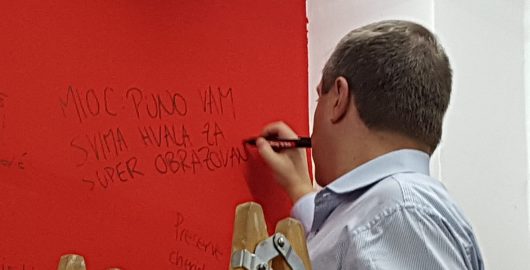 MIOC-PUNO VAM
SVIMA HVALA ZA
SUPER OBRAZOVAN
Preserve